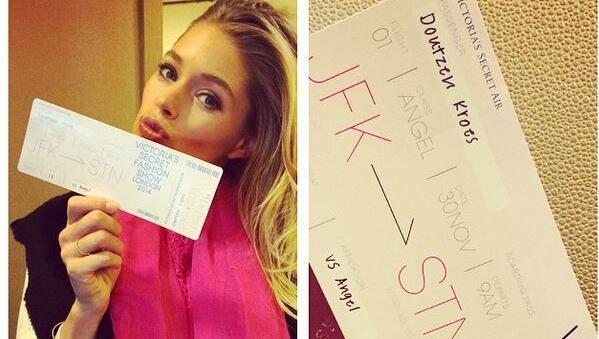 JFK → STN
VICTORIA'S
SECRET
FASHION
SHOW
LONDON
2014
VS Angel
VICTORIA'S SECRET AIR
PASSENGER
Doutzen Kroes
FLIGHT
01
CLASS
ANGEL
DATE
30NOV
BOARDING PASS
DEPARTS
9AM
JFK → STN
VS Angel